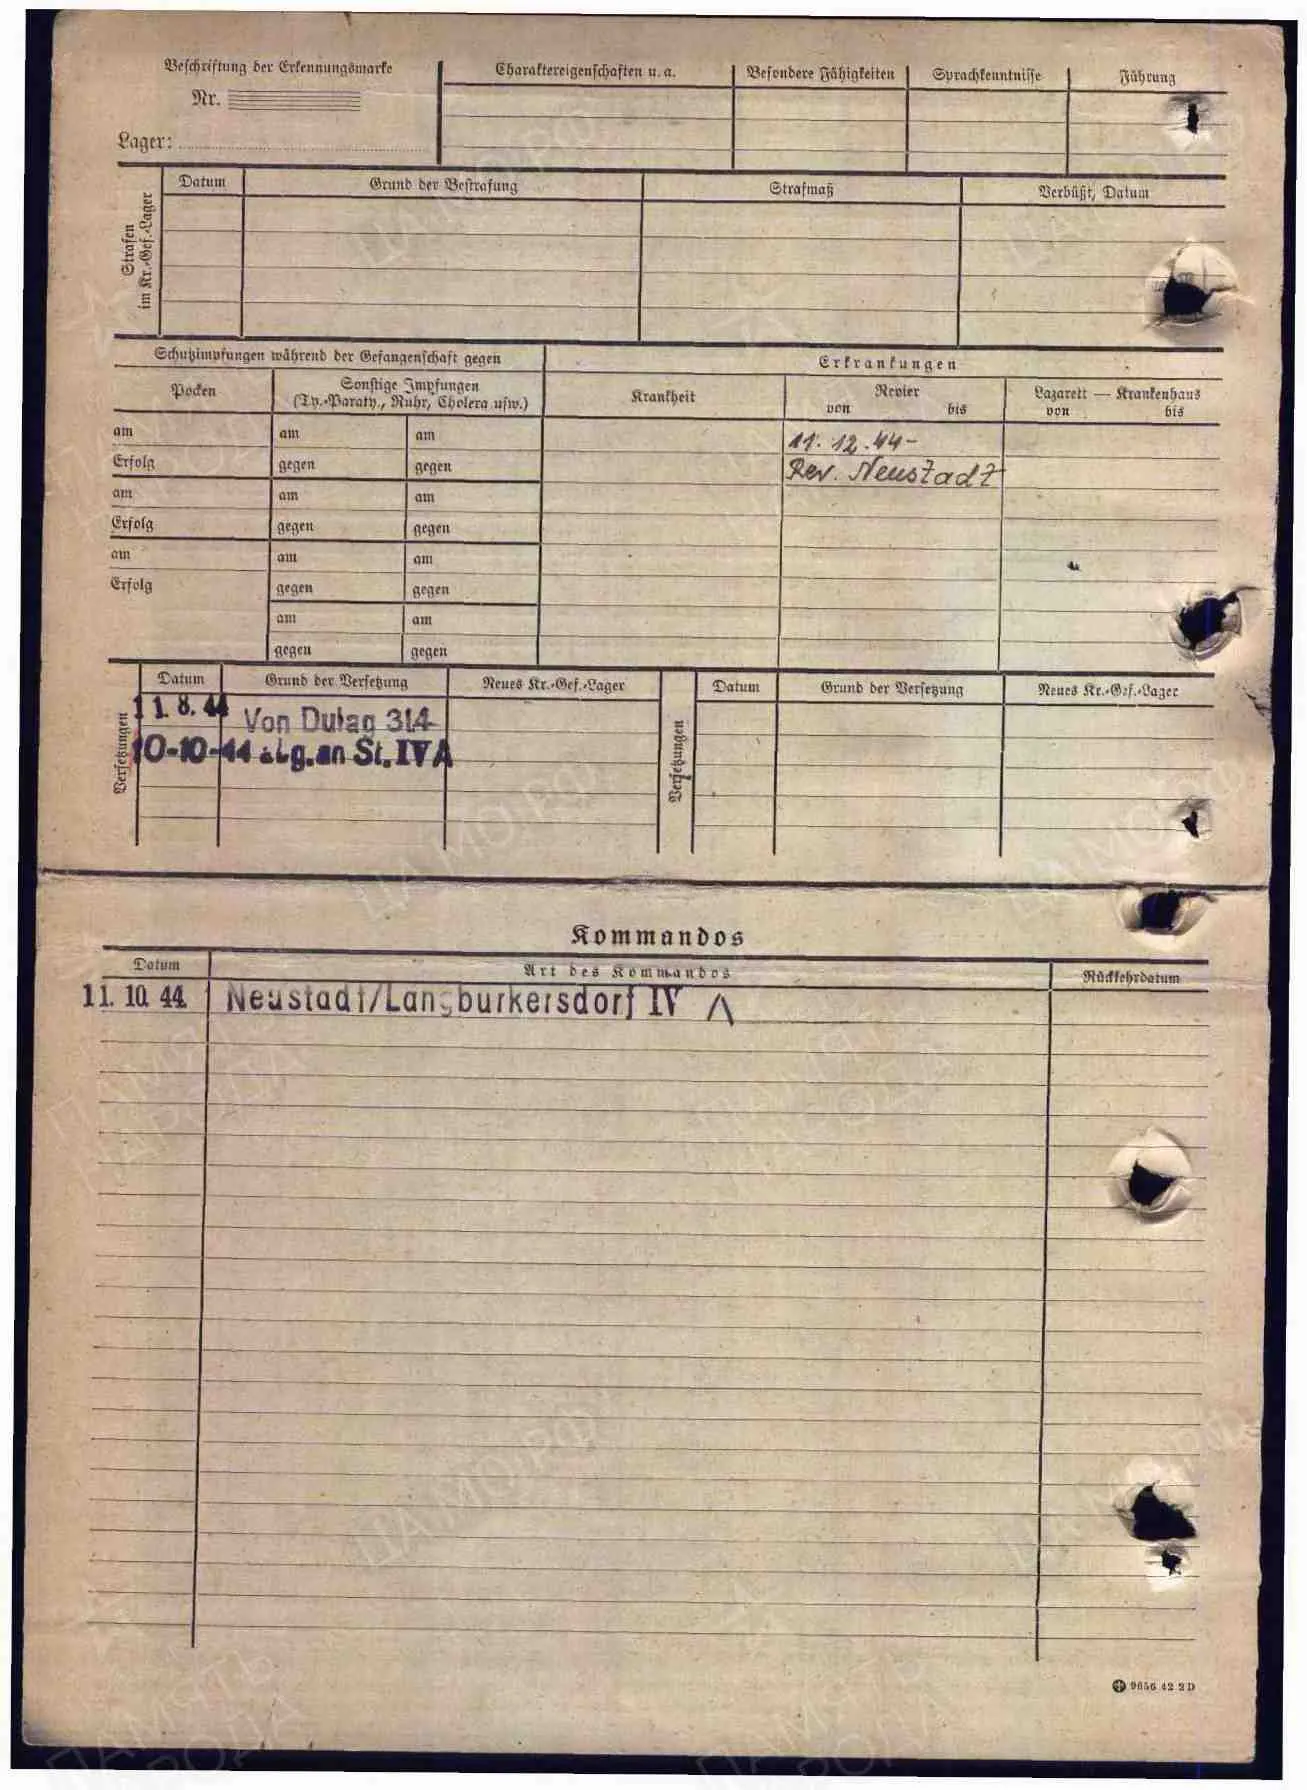 Beschriftung der Erkennungsmarke
Nr.
Lager:
Charaktereigenschaften u. a.
Besondere Fähigkeiten
Sprachkenntnisse
Führung
Strafen
im Kr.-Gef.-Lager
Datum
Grund der Bestrafung
Strafmaß
Verbüßt, Datum
Schutzimpfungen während der Gefangenschaft gegen
Erkrankungen
Pocken
Sonstige Impfungen
(Ty.-Paraty., Ruhr, Cholera usw.)
Krankheit
Revier
von bis
Lazarett — Krankenhaus
von bis
am am am
11. 12. 44-
Erfolg gegen gegen
Rev. Neustadt
am am am
Erfolg gegen gegen
am am am
Erfolg gegen gegen
am am
gegen gegen
Versetzungen
Datum Grund der Versetzung Neues Kr.-Gef.-Lager
11.8.44 Von Dulag 314
10-10-44 a.Lg.an St.IV A
Versetzungen
Datum Grund der Versetzung Neues Kr.-Gef.-Lager
Kommandos
Datum Art des Kommandos Rückkehrdatum
11. 10. 44. Neustadt/Langburkersdorf IV A
9656 42 2 D
ПАМЯТЬ
НАРОДА
ЦА МО РФ